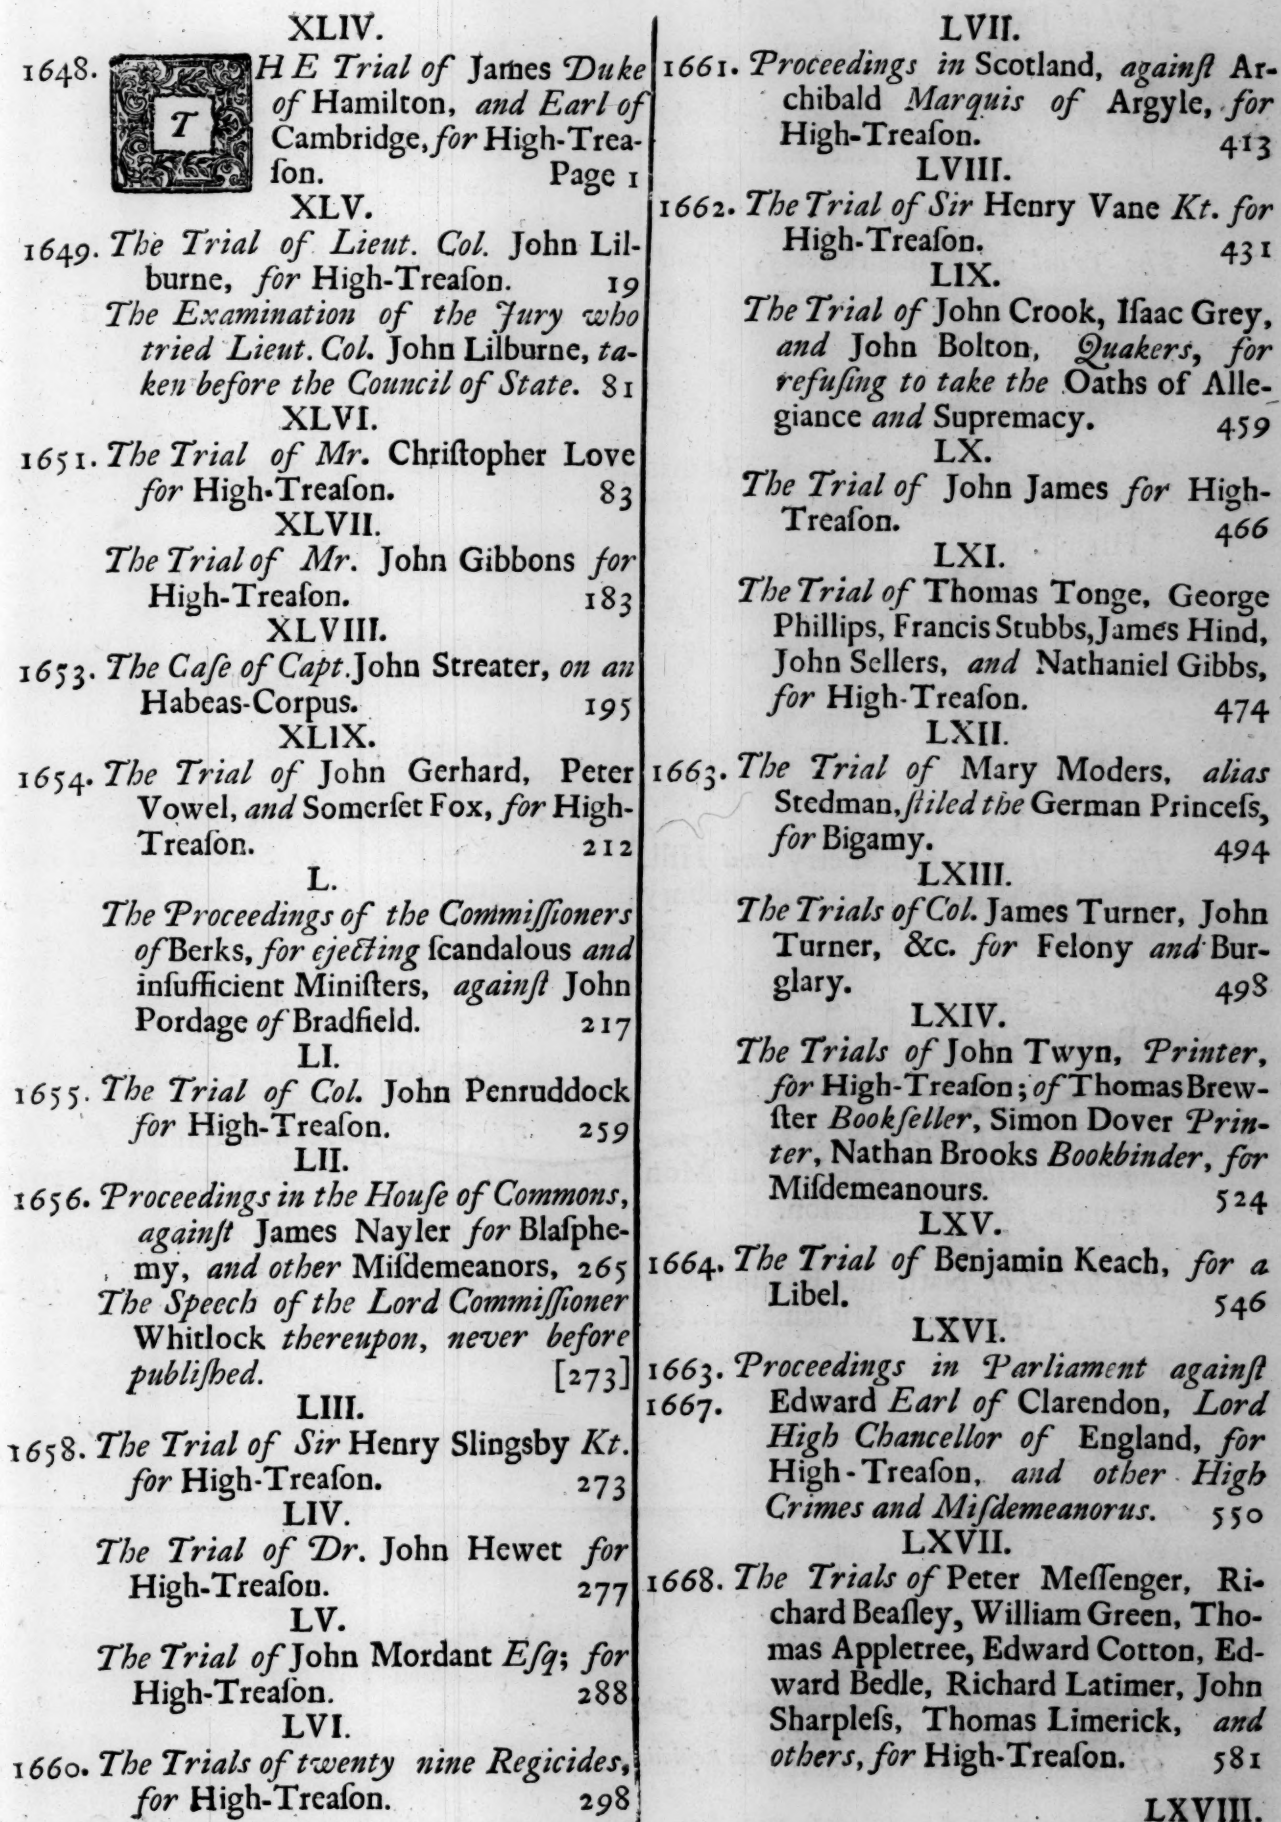 XLIV.
1648. THE Trial of James Duke
of Hamilton, and Earl of
Cambridge, for High-Trea-
ſon. Page 1
XLV.
1649. The Trial of Lieut. Col. John Lil-
burne, for High-Treaſon. 19
The Examination of the Jury who
tried Lieut. Col. John Lilburne, ta-
ken before the Council of State. 81
XLVI.
1651. The Trial of Mr. Chriſtopher Love
for High-Treaſon. 83
XLVII.
The Trial of Mr. John Gibbons for
High-Treaſon. 183
XLVIII.
1653. The Caſe of Capt. John Streater, on an
Habeas-Corpus. 195
XLIX.
1654. The Trial of John Gerhard, Peter
Vowel, and Somerſet Fox, for High-
Treaſon. 212
L.
The Proceedings of the Commiſſioners
of Berks, for ejecting ſcandalous and
inſufficient Miniſters, againſt John
Pordage of Bradfield. 217
LI.
1655. The Trial of Col. John Penruddock
for High-Treaſon. 259
LII.
1656. Proceedings in the Houſe of Commons,
againſt James Nayler for Blaſphe-
my, and other Miſdemeanors, 265
The Speech of the Lord Commiſſioner
Whitlock thereupon, never before
publiſhed. [273]
LIII.
1658. The Trial of Sir Henry Slingsby Kt.
for High-Treaſon. 273
LIV.
The Trial of Dr. John Hewet for
High-Treaſon. 277
LV.
The Trial of John Mordant Eſq; for
High-Treaſon. 288
LVI.
1660. The Trials of twenty nine Regicides,
for High-Treaſon. 298
LVII.
1661. Proceedings in Scotland, againſt Ar-
chibald Marquis of Argyle, for
High-Treaſon. 413
LVIII.
1662. The Trial of Sir Henry Vane Kt. for
High-Treaſon. 431
LIX.
The Trial of John Crook, Iſaac Grey,
and John Bolton, Quakers, for
refuſing to take the Oaths of Alle-
giance and Supremacy. 459
LX.
The Trial of John James for High-
Treaſon. 466
LXI.
The Trial of Thomas Tonge, George
Phillips, Francis Stubbs, James Hind,
John Sellers, and Nathaniel Gibbs,
for High-Treaſon. 474
LXII.
1663. The Trial of Mary Moders, alias
Stedman, ſtiled the German Princeſs,
for Bigamy. 494
LXIII.
The Trials of Col. James Turner, John
Turner, &c. for Felony and Bur-
glary. 498
LXIV.
The Trials of John Twyn, Printer,
for High-Treaſon; of Thomas Brew-
ſter Bookſeller, Simon Dover Prin-
ter, Nathan Brooks Bookbinder, for
Miſdemeanours. 524
LXV.
1664. The Trial of Benjamin Keach, for a
Libel. 546
LXVI.
1663. Proceedings in Parliament againſt
1667. Edward Earl of Clarendon, Lord
High Chancellor of England, for
High-Treaſon, and other High
Crimes and Miſdemeanorus. 550
LXVII.
1668. The Trials of Peter Meſſenger, Ri-
chard Beaſley, William Green, Tho-
mas Appletree, Edward Cotton, Ed-
ward Bedle, Richard Latimer, John
Sharpleſs, Thomas Limerick, and
others, for High-Treaſon. 581
LXVIII.